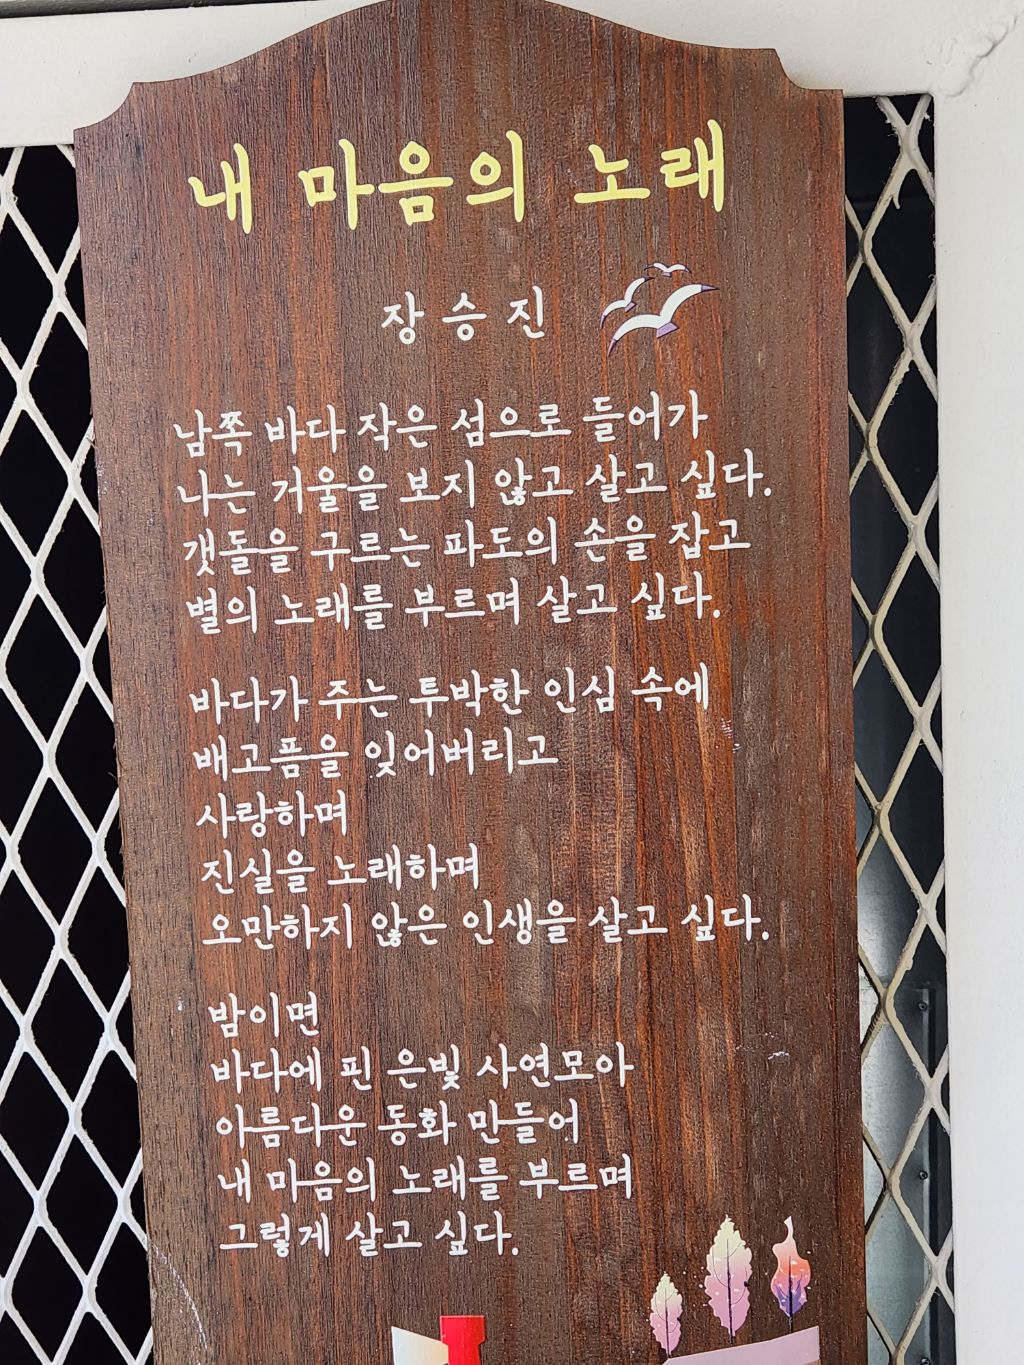 내 마음의 노래
장승진
남쪽 바다 작은 섬으로 들어가
나는 거울을 보지 않고 살고 싶다.
갯돌을 구르는 파도의 손을 잡고
별의 노래를 부르며 살고 싶다.
바다가 주는 투박한 인심 속에
배고픔을 잊어버리고
사랑하며
진실을 노래하며
오만하지 않은 인생을 살고 싶다.
밤이면
바다에 핀 은빛 사연모아
아름다운 동화 만들어
내 마음의 노래를 부르며
그렇게 살고 싶다.